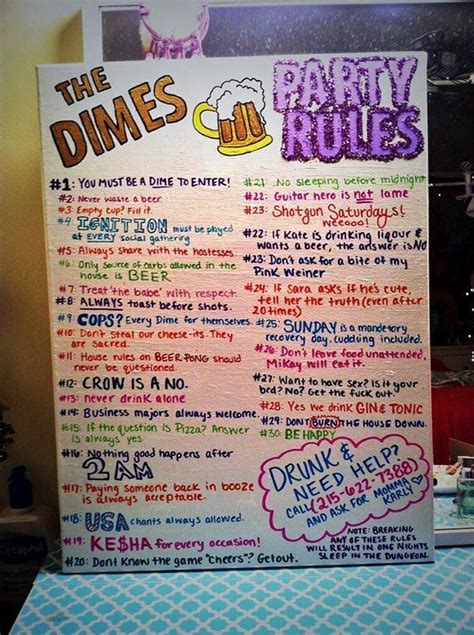 THE
DIMES
PARTY
RULES
#1: YOU MUST BE A DIME TO ENTER!
#2: Never waste a beer.
#3: Empty cup? Fill it.
#4: IGNITION must be played
at EVERY social gathering
#5: Always share with the hostesses.
#6: Only source of carbs allowed in the
house is BEER
#7: Treat 'the babe' with respect.
#8: ALWAYS toast before shots.
#9: COPS? Every Dime for themselves.
#10: Don't steal our cheese-its. They
are sacred.
#11: House rules on BEER PONG should
never be questioned.
#12: CROW IS A NO.
#13: never drink alone
#14: Business majors always welcome.
#15: If the question is Pizza? Answer
is always yes
#16: Nothing good happens after
2 AM
#17: Paying someone back in booze
is always acceptable.
#18: USA chants always allowed.
#19: KE$HA for every occasion!
#20: Dont Know the game "cheers"? Get out.
#21: No sleeping before midnight
#22: Guitar hero is not lame
#23: Shotgun Saturdays!
weeooo!
#22: if Kate is drinking liquor &
wants a beer, the answer is NO
#23: Don't ask for a bite of my
Pink Weiner
#24: If Sara asks if he's cute,
tell her the truth (even after
20 times)
#25: SUNDAY is a mandatory
recovery day. cudding included.
#26: Don't leave food unattended,
Mikay will eat it.
#27: Want to have sex? Is it your
bed? No? Get the fuck out.
#28: Yes we drink GIN & TONIC
#29: DONT BURN THE HOUSE DOWN.
#30: BE HAPPY
DRUNK &
NEED HELP?
CALL (215-622-7388)
AND ASK FOR MOMMA
KARLY
NOTE: BREAKING
ANY OF THESE RULES
WILL RESULT IN ONE NIGHTS
SLEEP IN THE DUNGEON.
Cetaphil